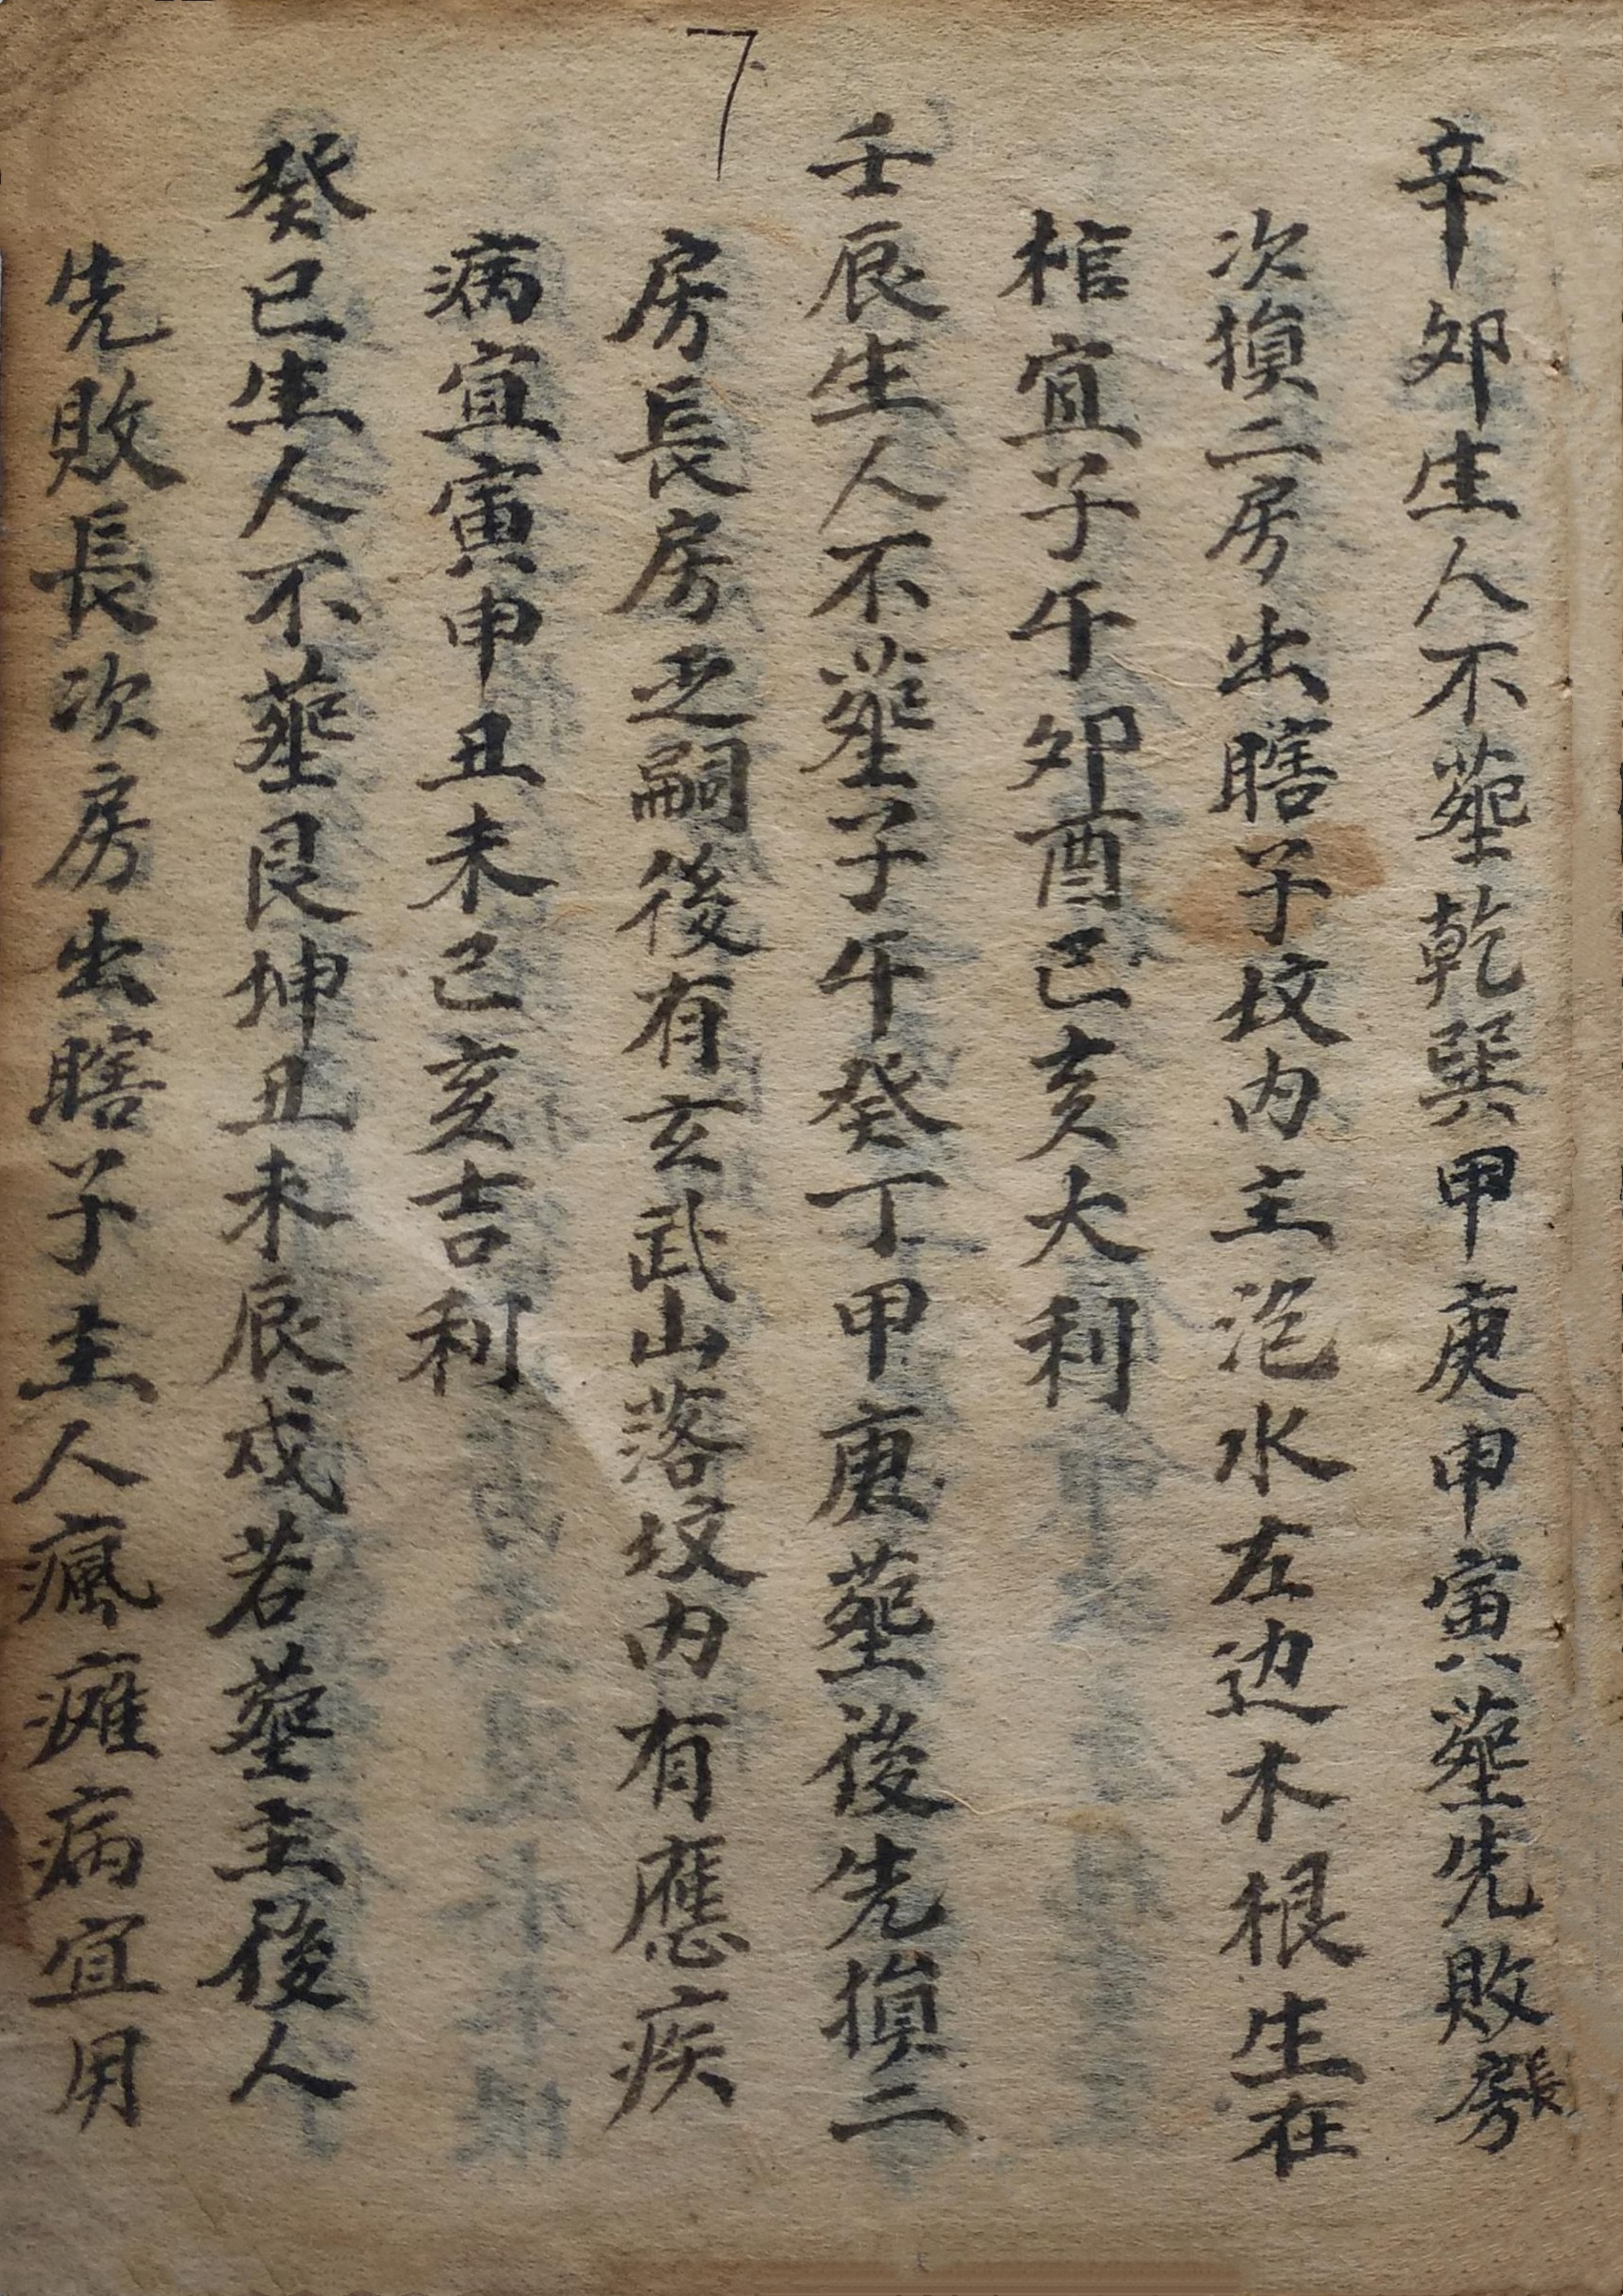 辛夘生人不塟乾巽甲庚申寅塟先敗長房
次損二房出瞎子坟内主泡水左边木根生在
棺宜子午夘酉己亥大利
壬辰生人不塟子午癸丁甲庚塟後先損二
房長房乏嗣後有玄武山落坟内有應疾
病宜寅申丑未己亥吉利
癸巳生人不塟艮坤丑未辰戌若塟主後人
先敗長次房出瞎子主人瘋瘫病宜用